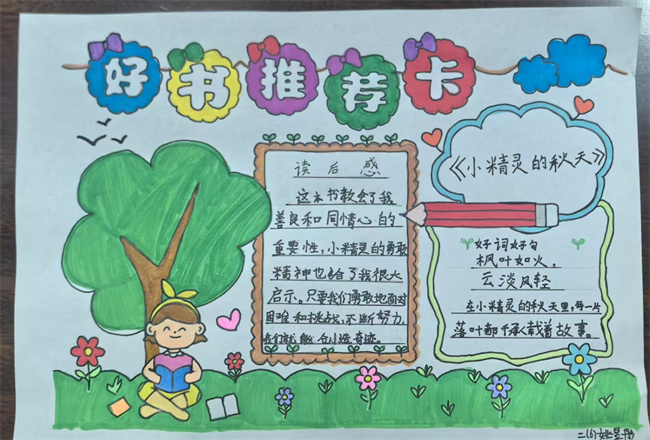 好书推荐卡
读后感
这本书教会了我
善良和同情心的
重要性，小精灵的勇敢
精神也给了我很大
启示。只要我们勇敢地面对
困难和挑战，不断努力，
我们就能创造奇迹。
《小精灵的秋天》
好词好句
枫叶如火，
云淡风轻
在小精灵的秋天里，每一片
落叶都承载着故事。
二(6)姚昱彤